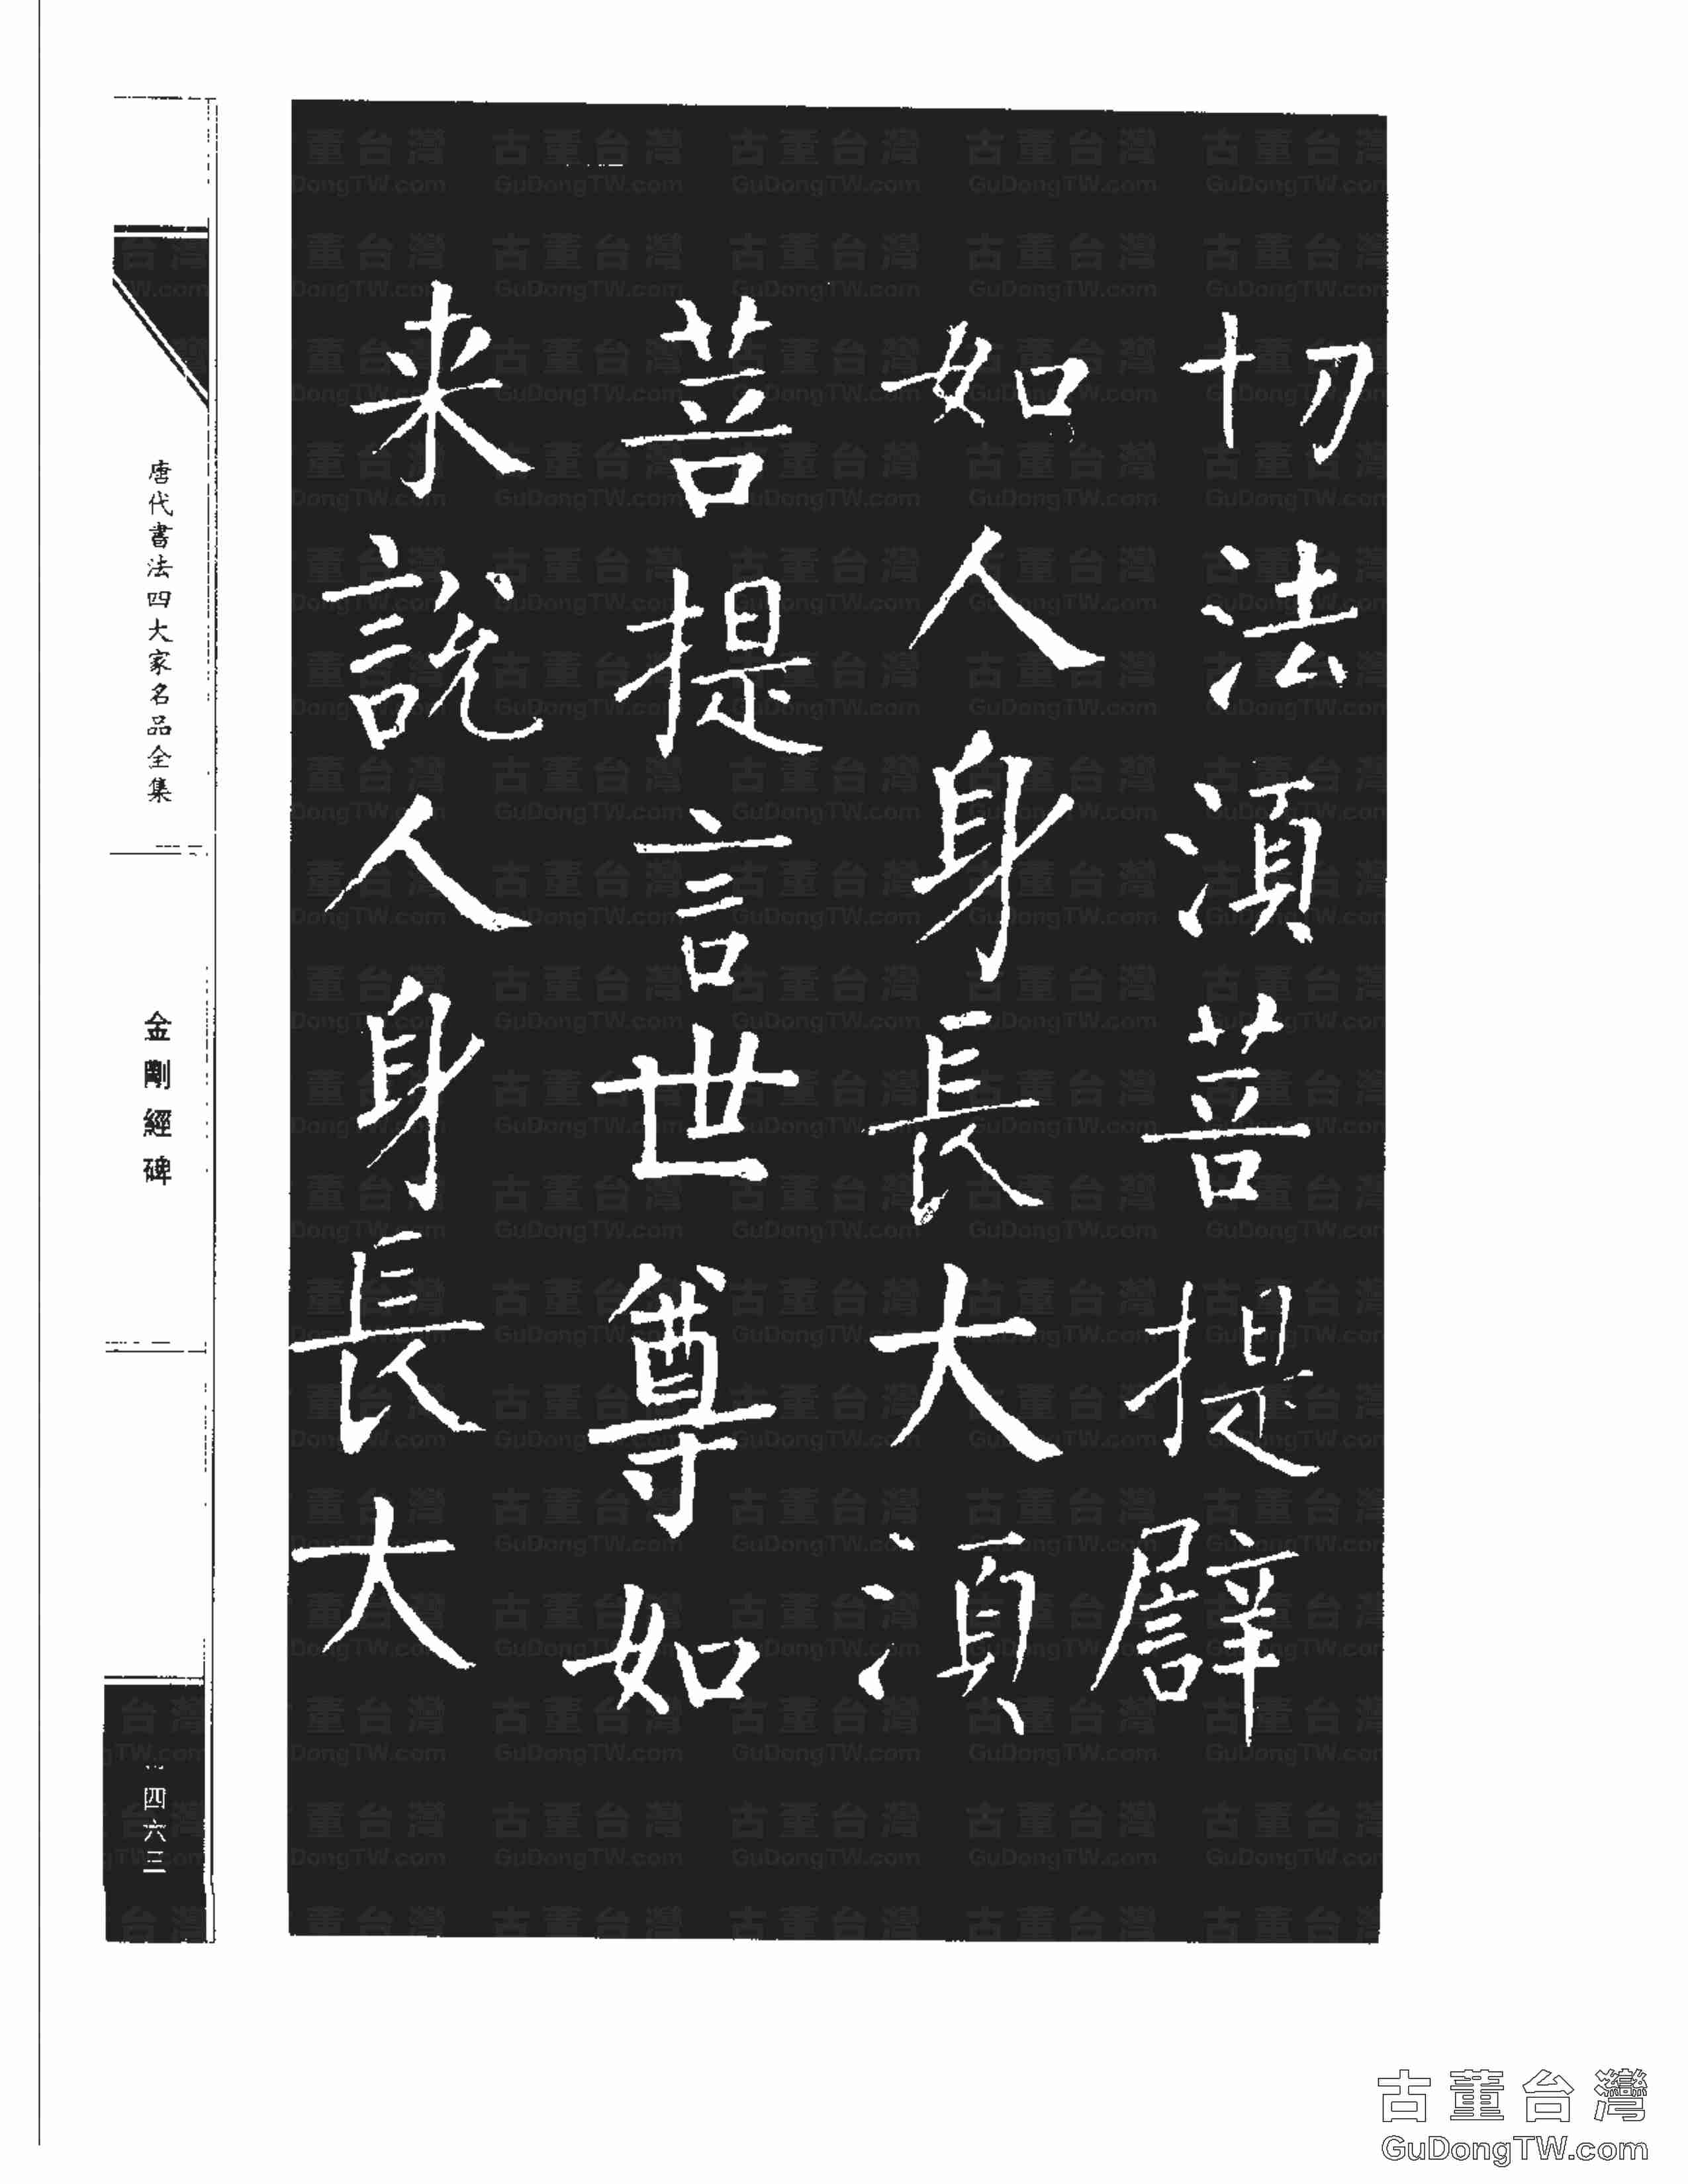 切法湏菩提譬
如人身長大湏
菩提言世尊如
来說人身長大
唐代書法四大家名品全集
金剛經碑
四六三
古董台灣
GuDongTW.com